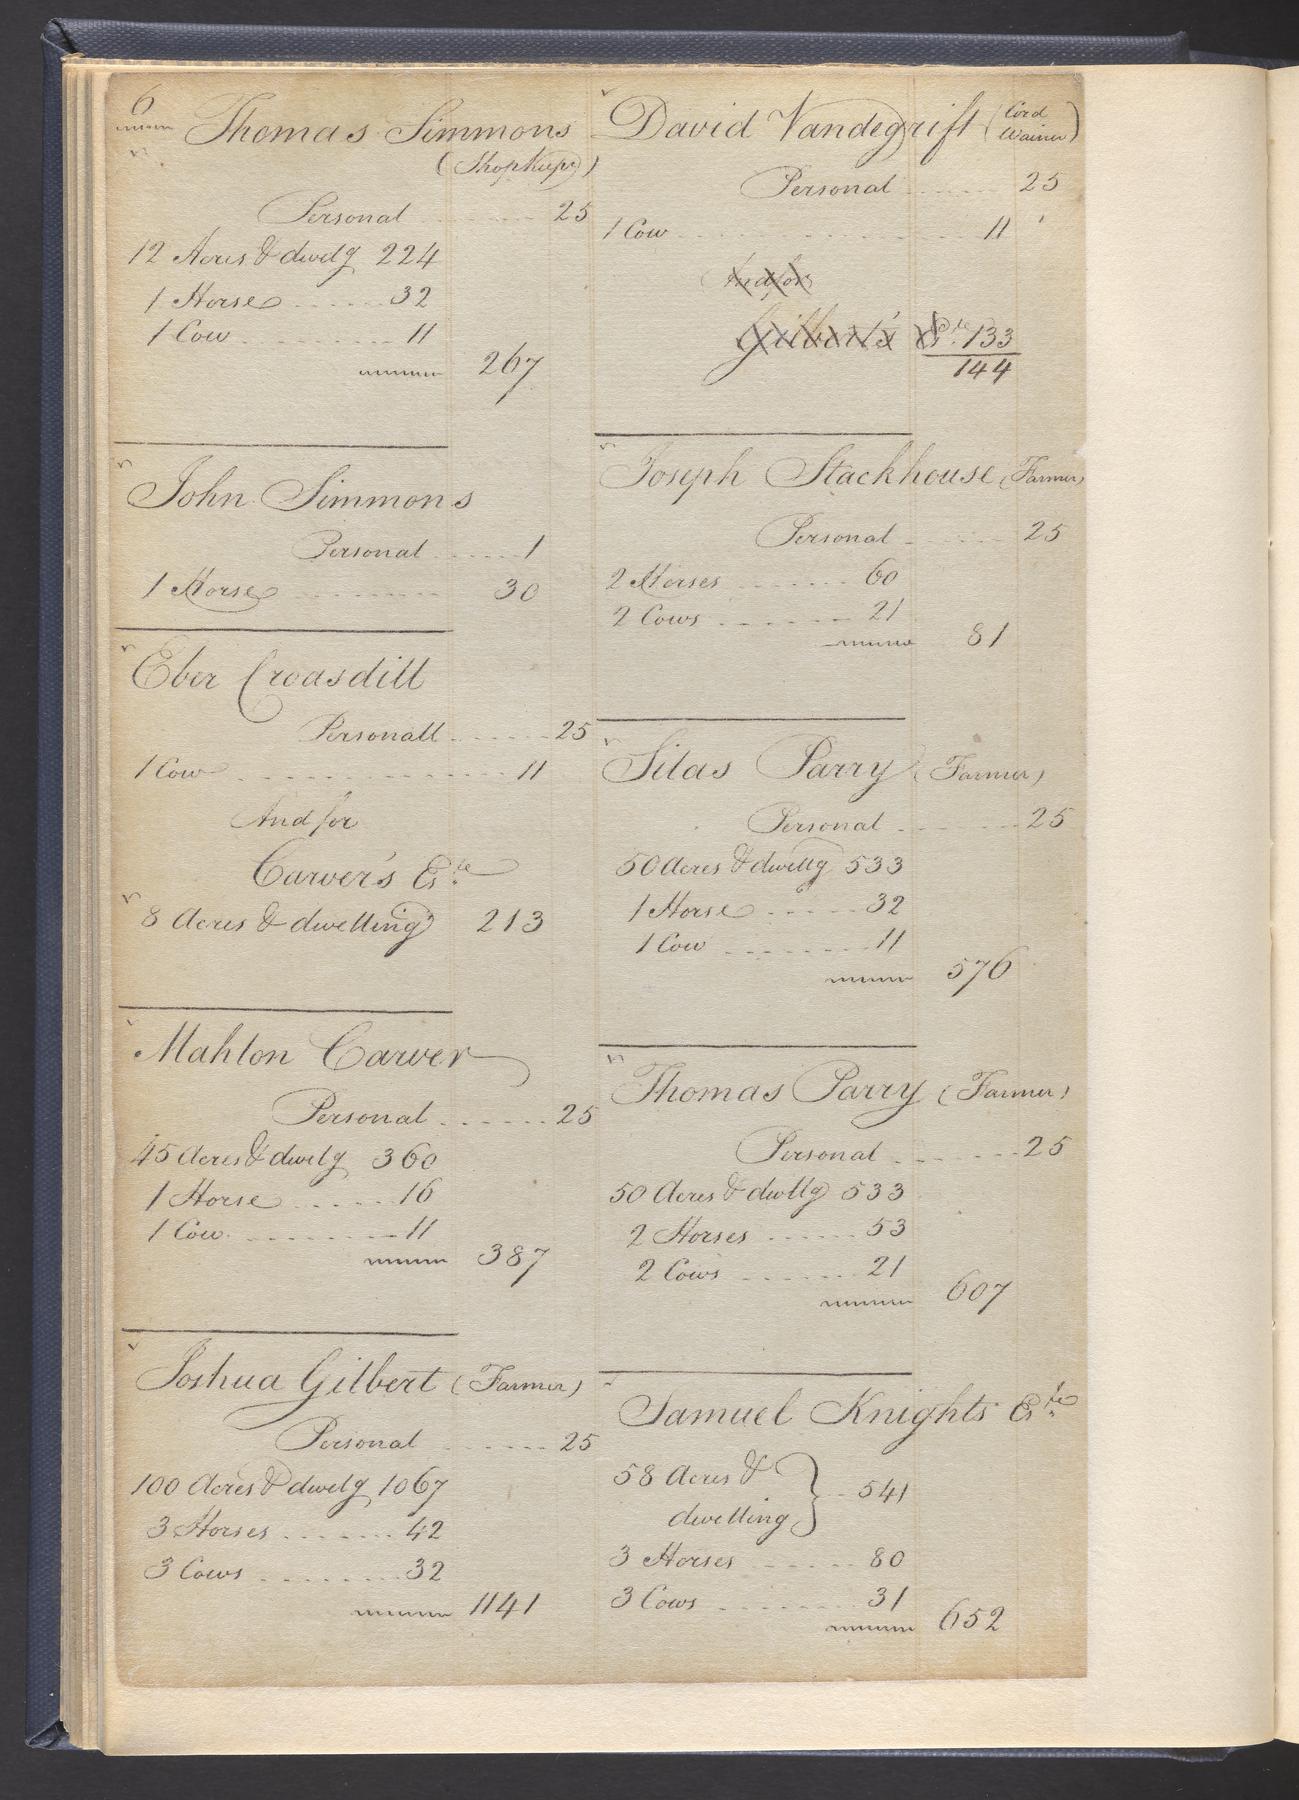 6
Thomas Simmons
(Shopkeepr)
Personal 25
12 Acres & dwelg 224
1 Horse 32
1 Cow 11
267
John Simmons
Personal 1
1 Horse 30
Eber Croasdill
Personall 25
1 Cow 11
And for
Carver's Este
8 Acres & dwelling 213
Mahlon Carver
Personal 25
45 Acres & dwelg 360
1 Horse 16
1 Cow 11
387
Joshua Gilbert (Farmer)
Personal 25
100 Acres & dwelg 1067
3 Horses 42
3 Cows 32
1141
David Vandegrift (Cord
Wainer)
Personal 25
1 Cow 11
And for
Gilbert's Este 133
144
Joseph Stackhouse (Farmer)
Personal 25
2 Horses 60
2 Cows 21
81
Silas Parry (Farmer)
Personal 25
50 Acres & dwellg 533
1 Horse 32
1 Cow 11
576
Thomas Parry (Farmer)
Personal 25
50 Acres & dwellg 533
2 Horses 53
2 Cows 21
607
Samuel Knights Este
58 Acres &
dwelling } 541
3 Horses 80
3 Cows 31
652